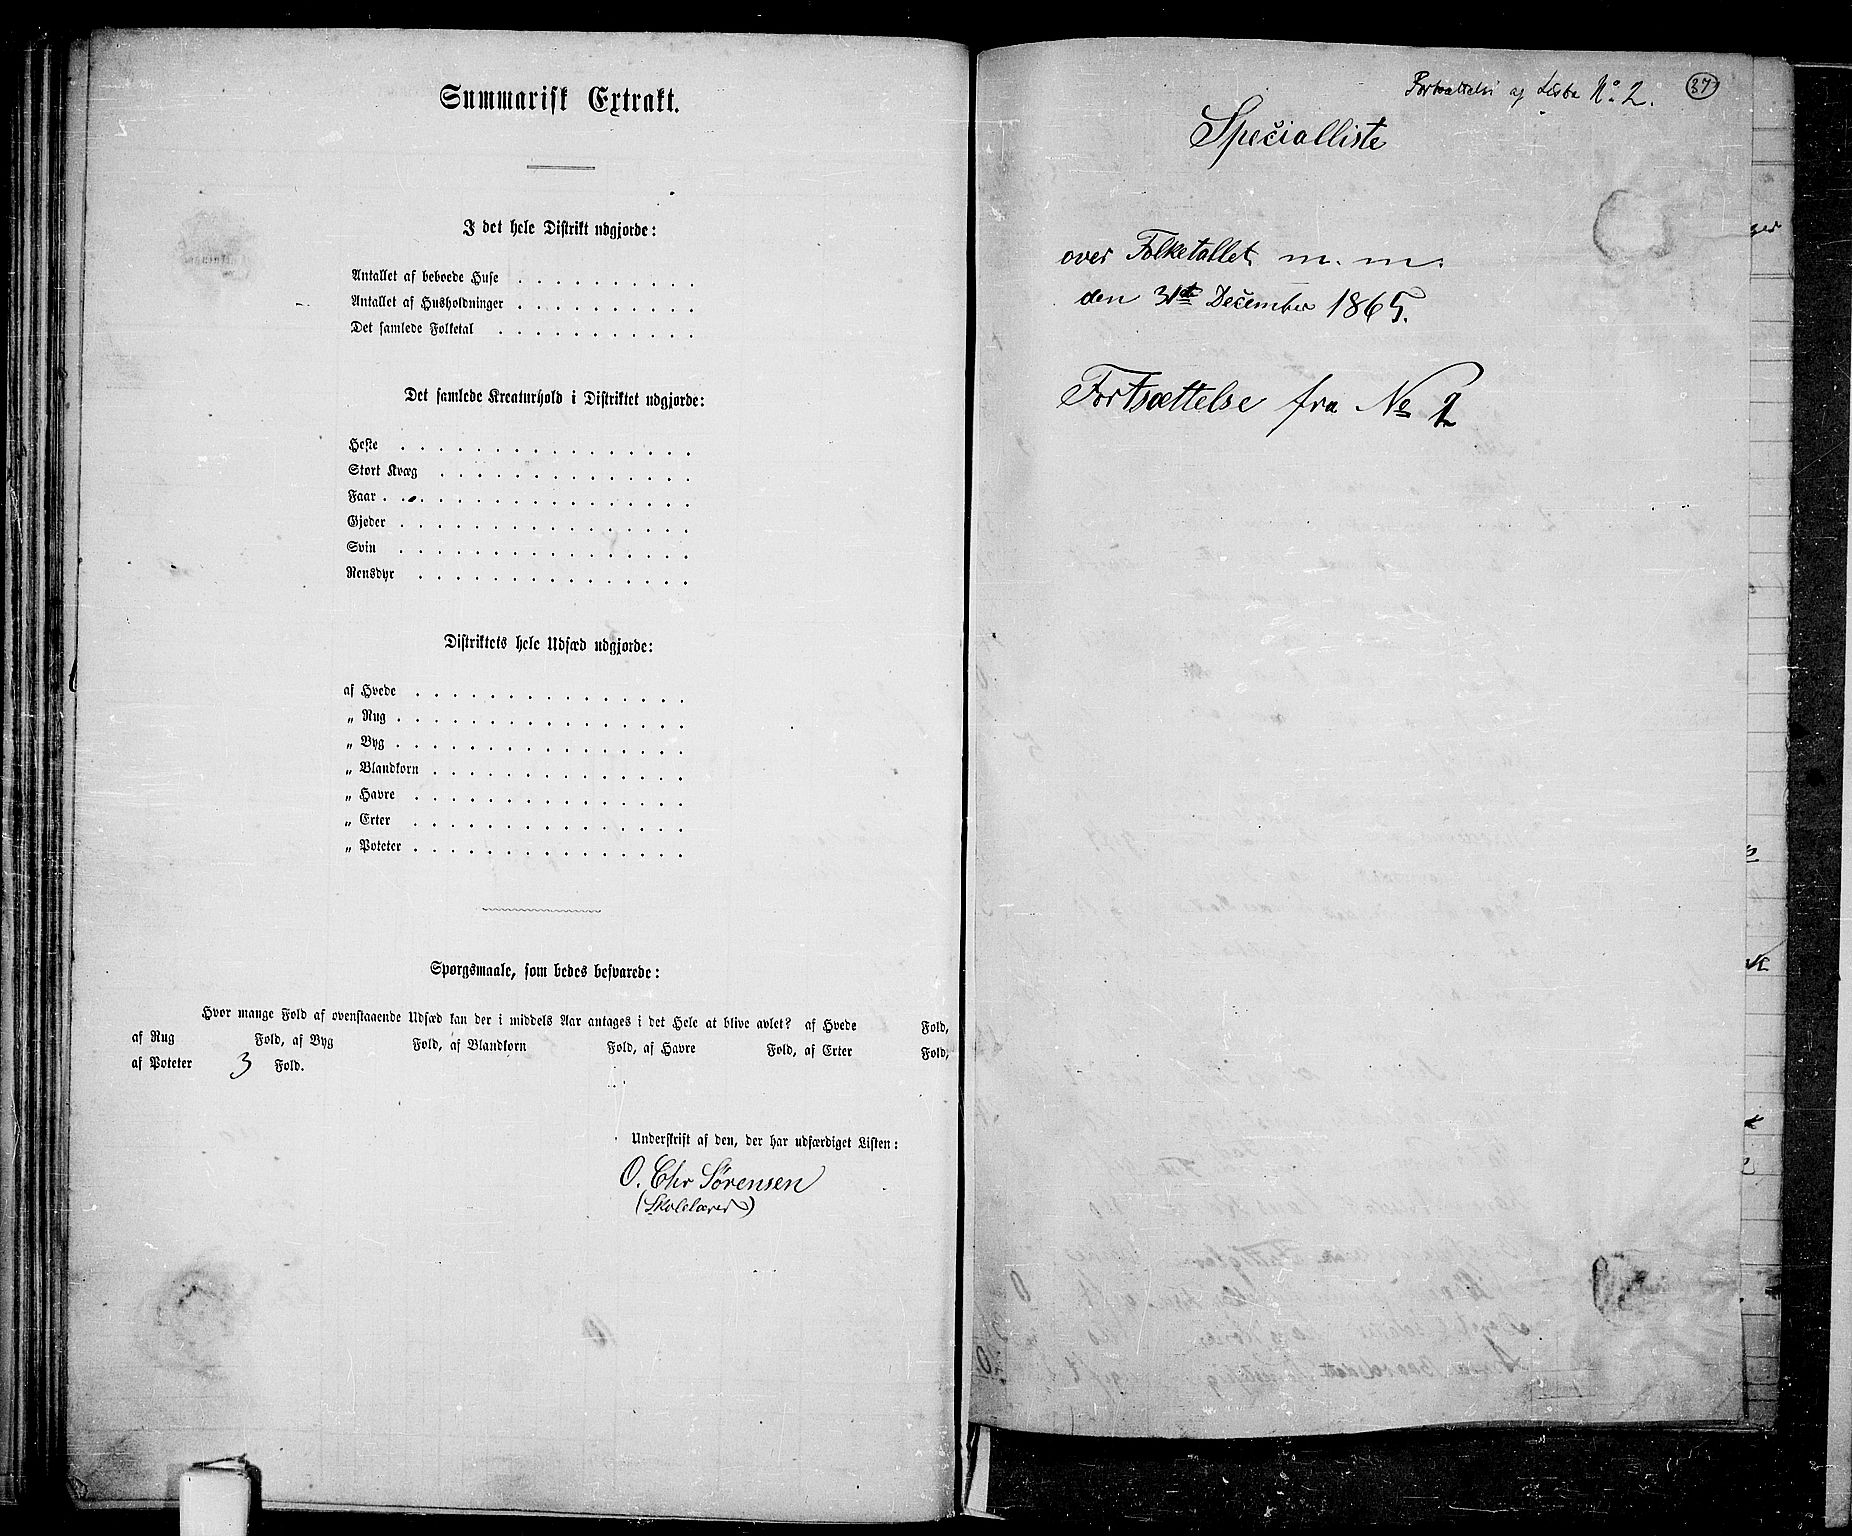 Summarisk Extrakt.
I det hele Distrikt udgjorde:
Antallet af beboede Huse . . . . . . . . . .
Antallet af Husholdninger . . . . . . . . . .
Det samlede Folketal . . . . . . . . . . .
Det samlede Kreaturhold i Distriktet udgjorde:
Heste . . . . . . . . . . . . . . . .
Stort Kvæg . . . . . . . . . . . . . .
Faar . . . . . . . . . . . . . . . . .
Gjeder . . . . . . . . . . . . . . . .
Svin . . . . . . . . . . . . . . . .
Rensdyr . . . . . . . . . . . . . . .
Distriktets hele Udsæd udgjorde:
af Hvede . . . . . . . . . . . . . . .
„ Rug . . . . . . . . . . . . . . . .
„ Byg . . . . . . . . . . . . . . . .
„ Blandkorn . . . . . . . . . . . . . .
„ Havre . . . . . . . . . . . . . . .
„ Erter . . . . . . . . . . . . . . .
„ Poteter . . . . . . . . . . . . . . .
Spørgsmaale, som bedes besvarede:
Hvor mange Fold af ovenstaaende Udsæd kan der i middels Aar antages i det Hele at blive avlet? af Hvede Fold,
af Rug Fold, af Byg Fold, af Blandkorn Fold, af Havre Fold, af Erter Fold,
af Poteter 3 Fold.
Underskrift af den, der har udfærdiget Listen:
O. Chr Sørensen
(Skolelærer)
Fortsættelse af Liste No. 2.
37
Specialliste
over Folketallet m. m.
den 31te December 1865.
Fortsættelse fra No 2